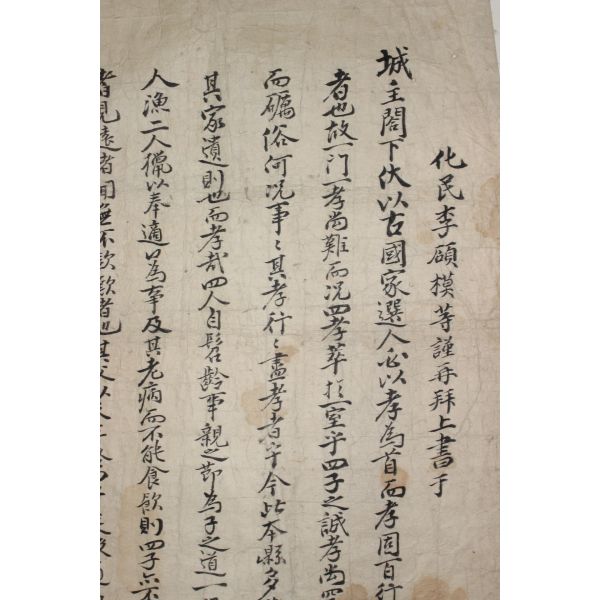 化民李碩模等謹再拜上書于
城主閤下伏以古國家選人必以孝為首而孝固百行
者也故一門一孝尚難而况四孝萃於一室乎四子之誠孝尚
而礪俗何况事〻其孝行〻盡孝者乎今此本縣多
其家遺則也而孝哉四人自髫齡事親之節為子之道一
人漁二人獵以奉適口為事及其老病而不能食飮則四子六不
者見遠者聞無不欽歎者也其父以